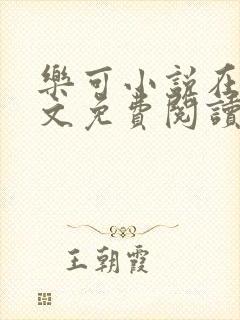 樂可小說在
文免費閱讀
王朝霞